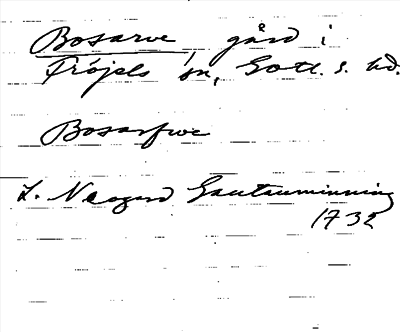 Bosarve, gård i
Fröjels sn, Gotl. s. hd.
Bosarfwe
L. Neogard Gautauminning
1732